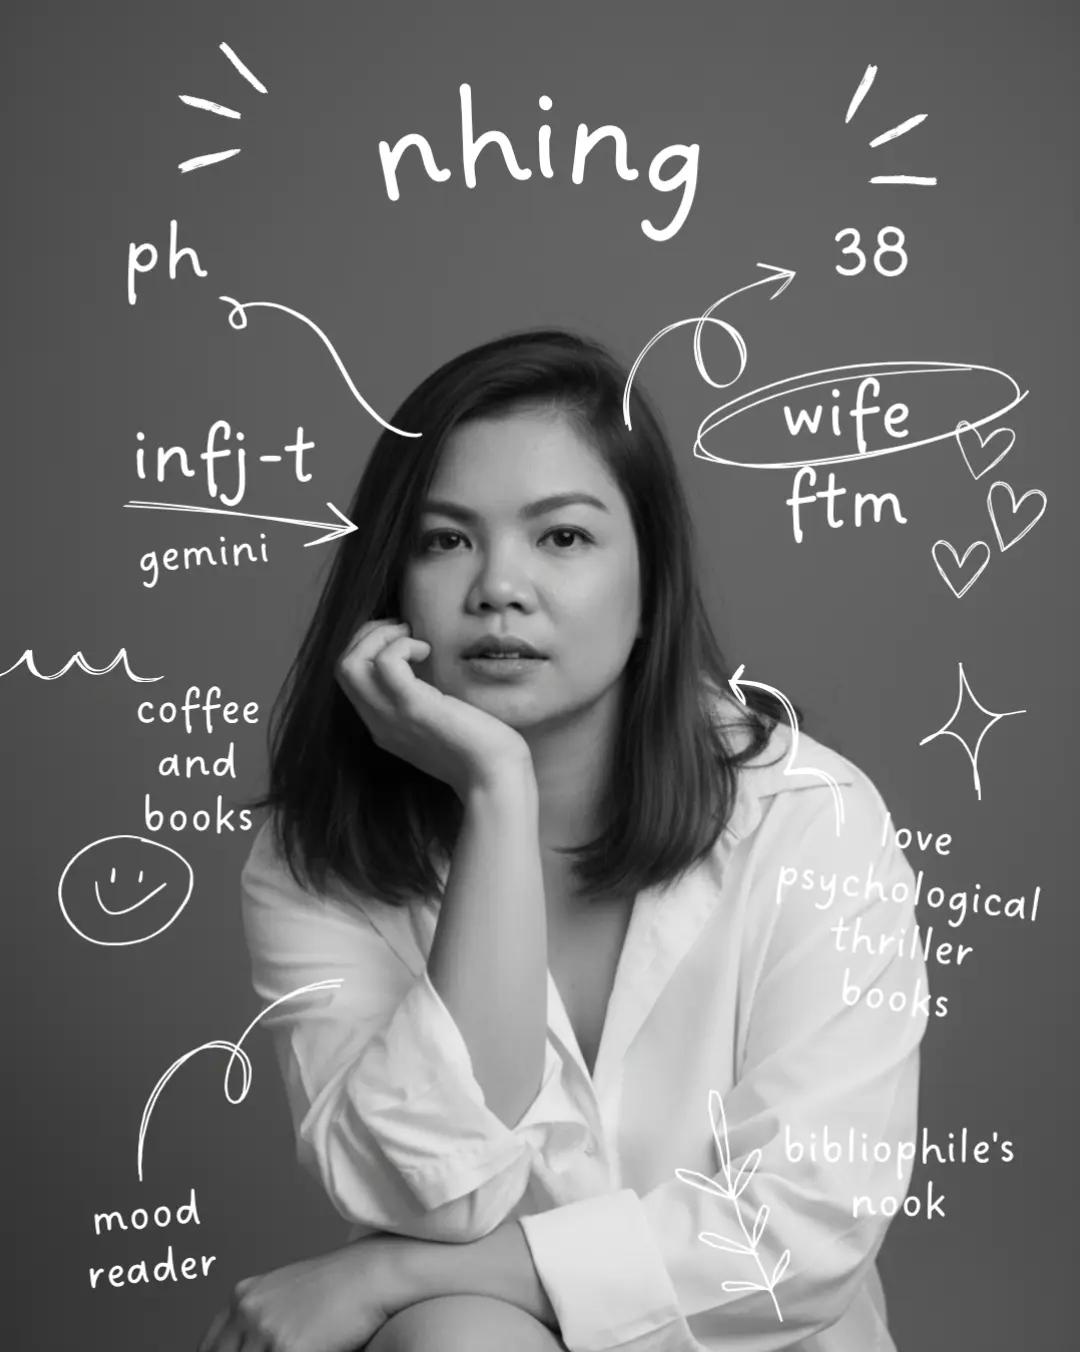 nhing
ph
38
infj-t
gemini
wife
ftm
coffee
and
books
love
psychological
thriller
books
mood
reader
bibliophile's
nook